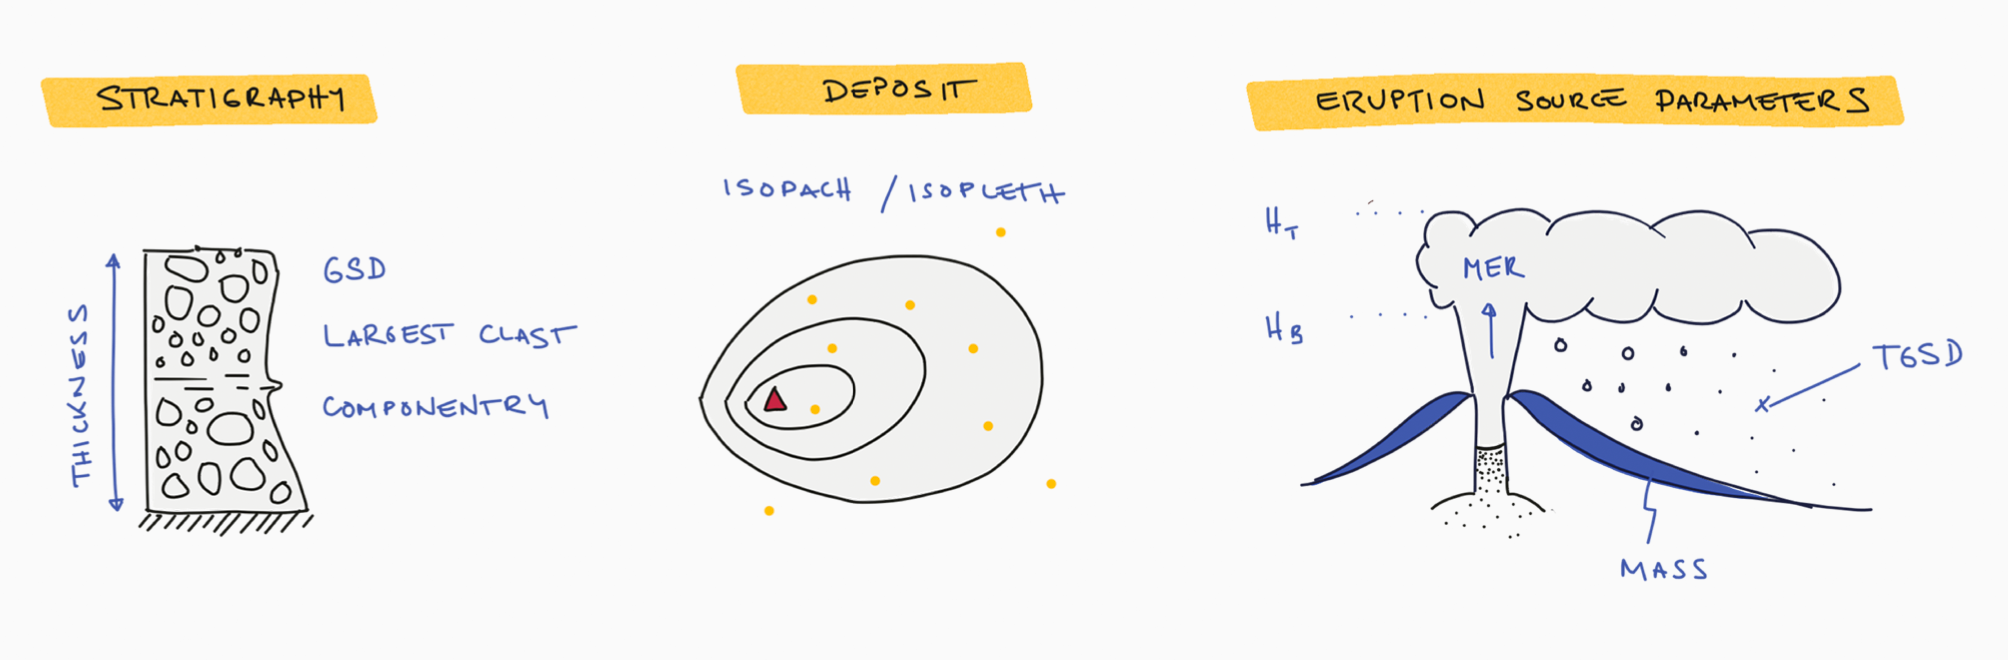 STRATIGRAPHY
THICKNESS
GSD
LARGEST CLAST
COMPONENTRY
DEPOSIT
ISOPACH / ISOPLETH
ERUPTION SOURCE PARAMETERS
HT
MER
HB
TGSD
MASS